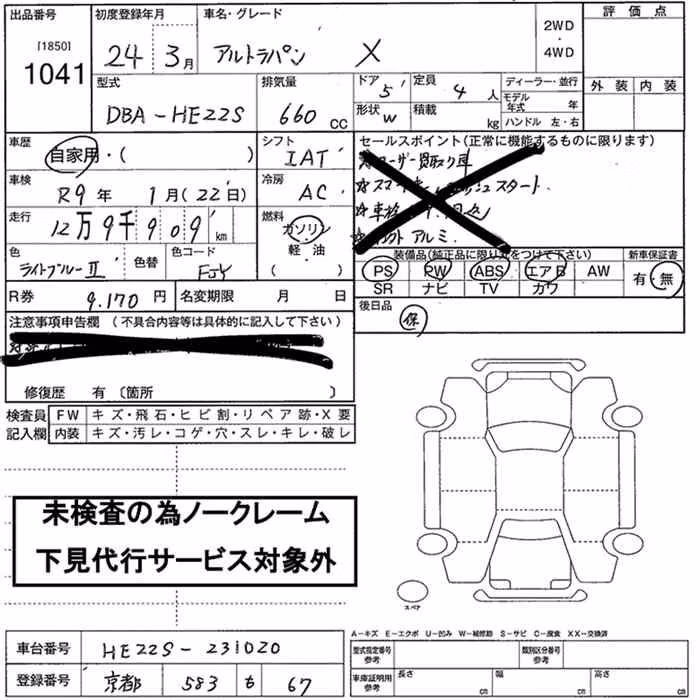 出品番号 初度登録年月 車名・グレード 2WD ・ 4WD 評価点
[1850]
1041 24 3月 アルトラパン X
外装 内装
型式 排気量 ドア 5 定員 4人 ディーラー・並行
モデル年式 年
DBA-HE22S 660 CC 形状 W 積載 kg ハンドル 左・右
車歴 自家用・( ) シフト IAT セールスポイント(正常に機能するものに限ります)
車検 R9年 1月(22日) 冷房 AC
走行 12万9千909km 燃料 ガソリン
軽・油
アルミ
色 ライトブルーII 色替 色コード
装備品(純正品に限り○をつけて下さい) 新車保証書
PS PW ABS エアB AW 有・無
SR ナビ TV カワ
R券 9.170円 名変期限 月 日 後日品 保
注意事項申告欄(不具合内容等は具体的に記入して下さい)
修復歴 有〔箇所 〕
検査員 FW キズ・飛石・ヒビ割・リペア跡・X要
記入欄 内装 キズ・汚レ・コゲ・穴・スレ・キレ・破レ
未検査の為ノークレーム
下見代行サービス対象外
スペア
A-キズ E-エクボ U-凹み W-補修跡 S-サビ C-腐食 XX-交換済
車台番号 HE22S-231020 型式指定番号 参考 類別区分番号 参考
登録番号 京都 583 も 67 車庫証明用 参考 長さ cm 幅 cm 高さ cm